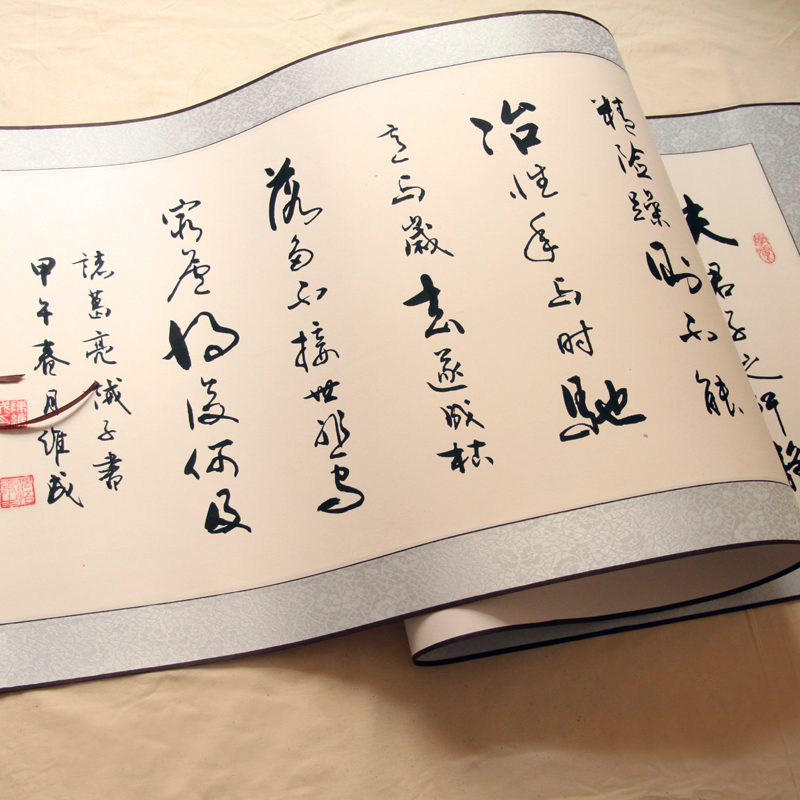 夫君子之行
精险躁则不能
冶性年与时馳
意与歲去遂成枯
落多不接世悲守
穷庐将复何及
諸葛亮诫子书
甲午春月维